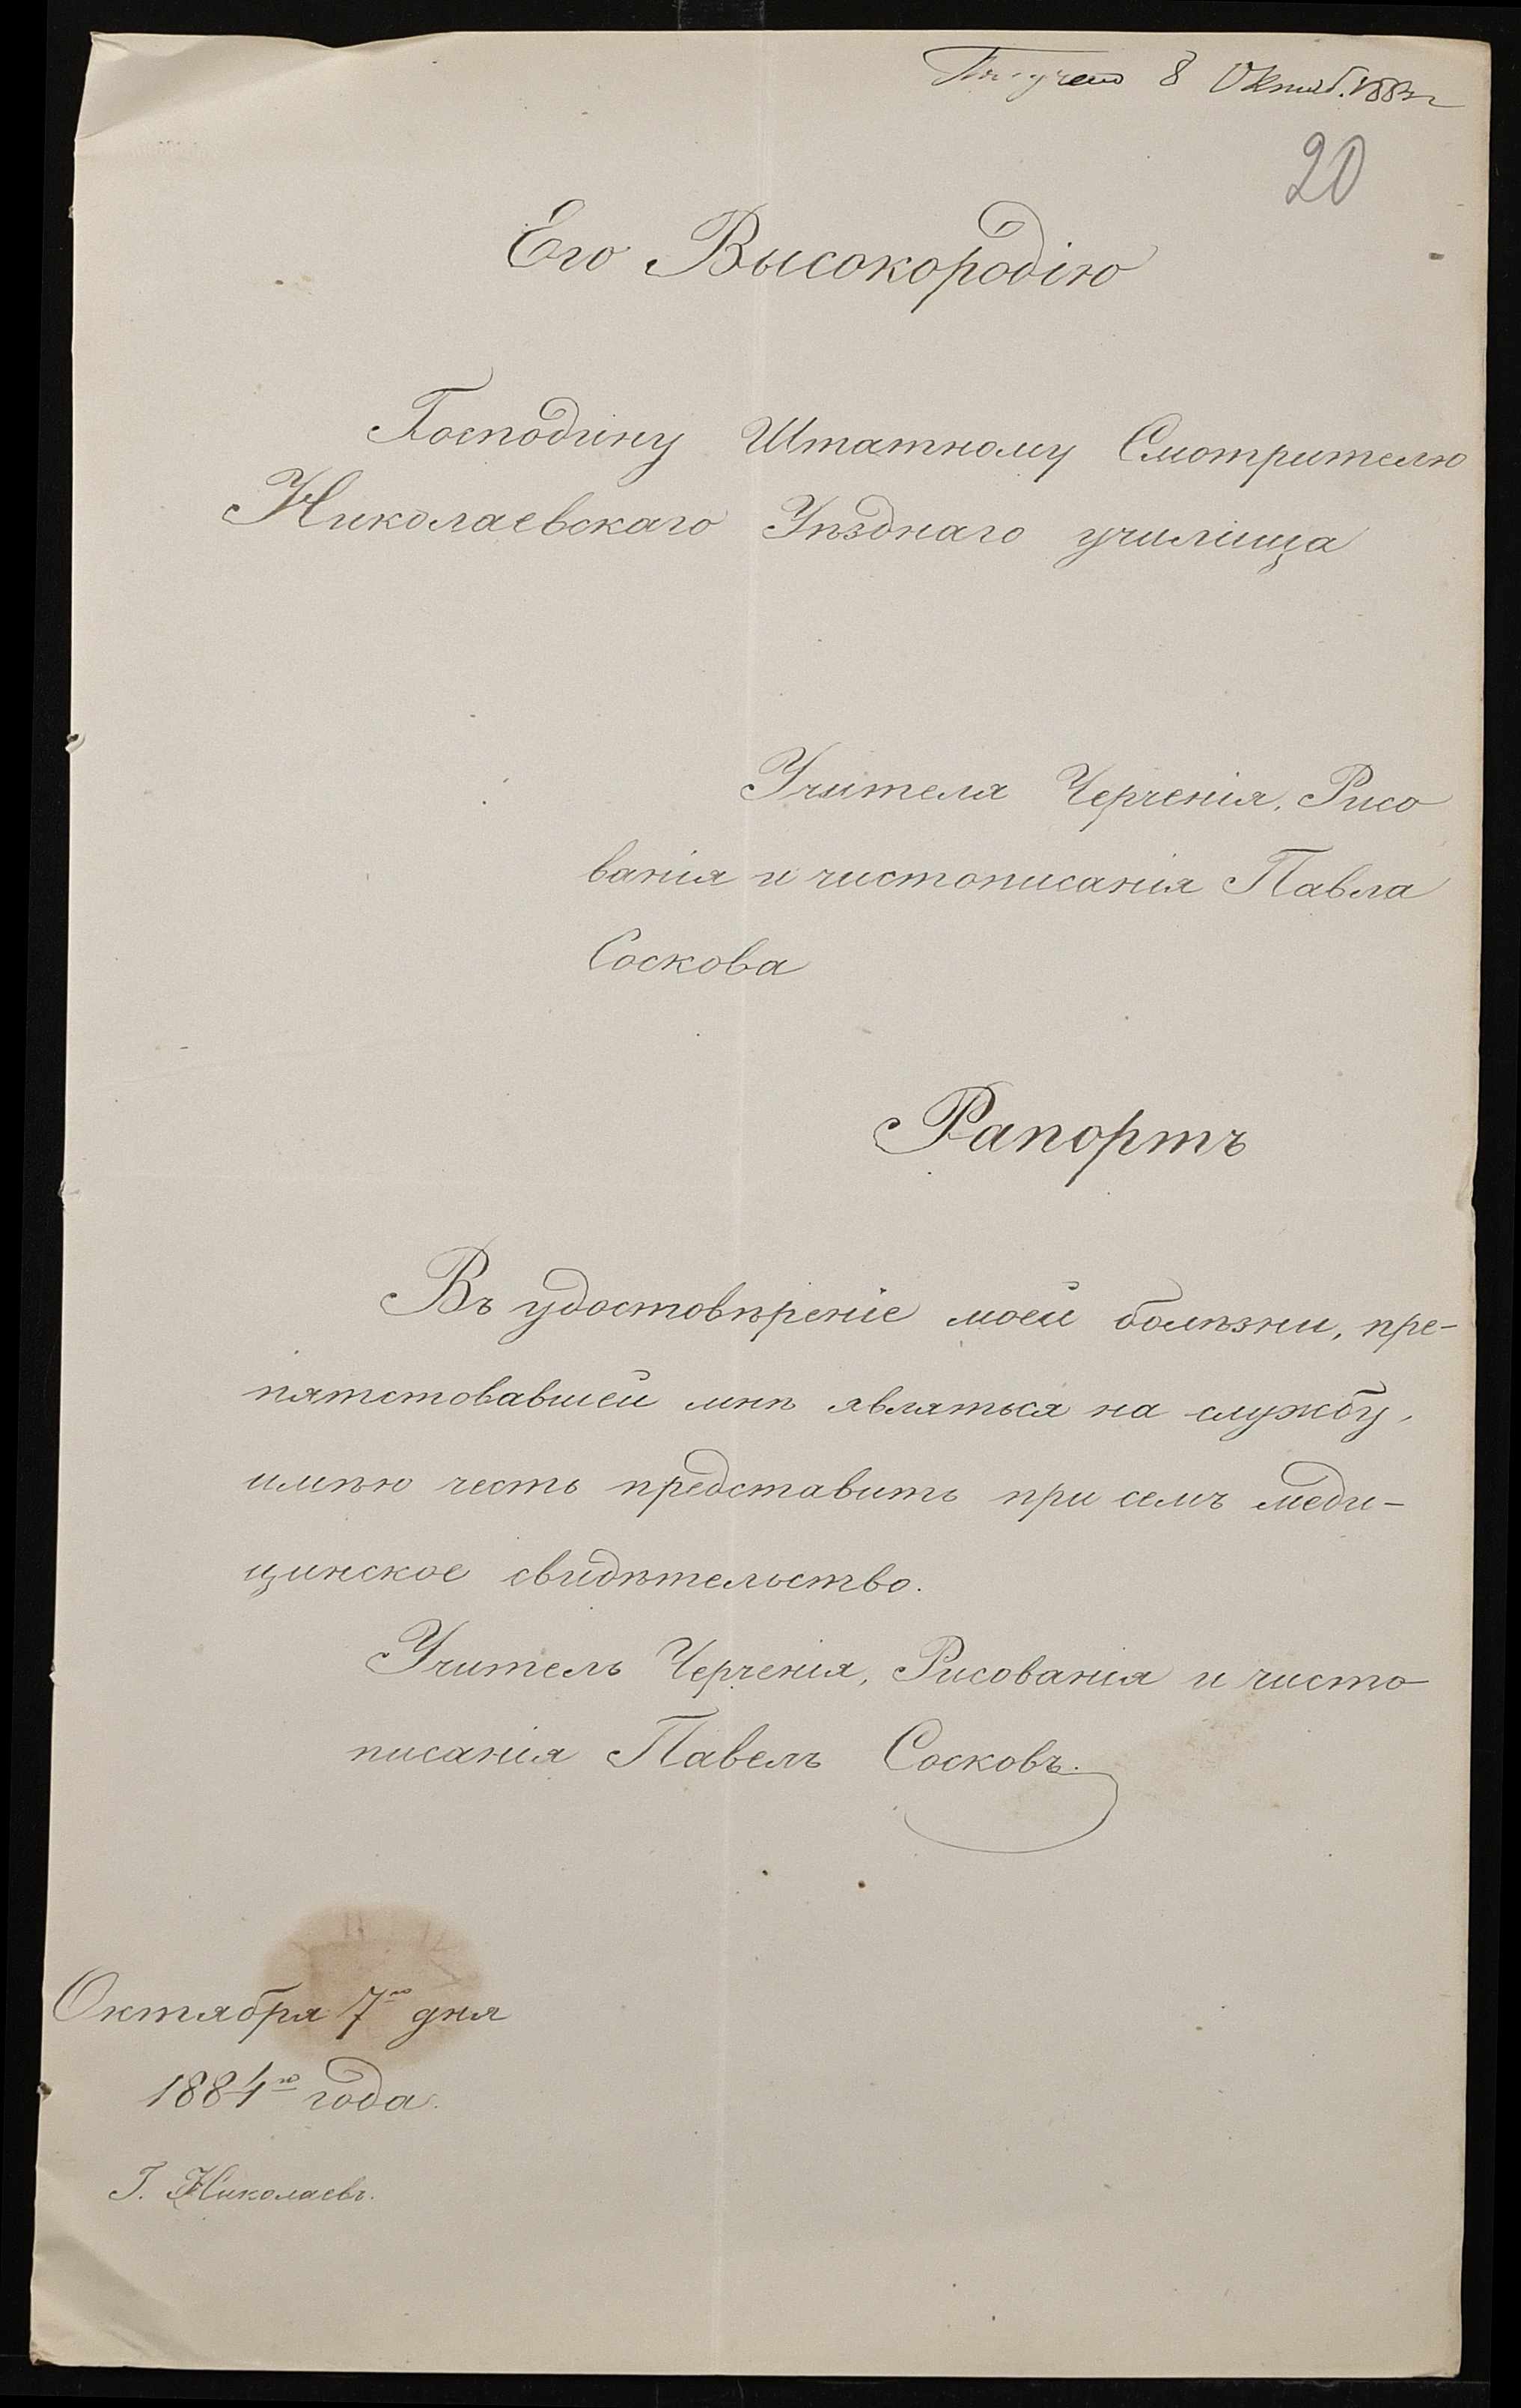 Получено 8 Октяб. 1884 г
20
Его Высокородію
Господину Штатному Смотрителю
Николаевскаго Уѣзднаго училища
Учителя Черченія, Рисо
ванія и чистописанія Павла
Соскова
Рапортъ
Въ удостовѣреніе моей болѣзни, пре-
пятстовавшей мнѣ являться на службу,
имѣю честь представить при семъ меди-
цинское свидѣтельство.
Учитель Черченія, Рисованія и чисто
писанія Павелъ Сосковъ.
Октября 7го дня
1884го года.
Г. Николаевъ.